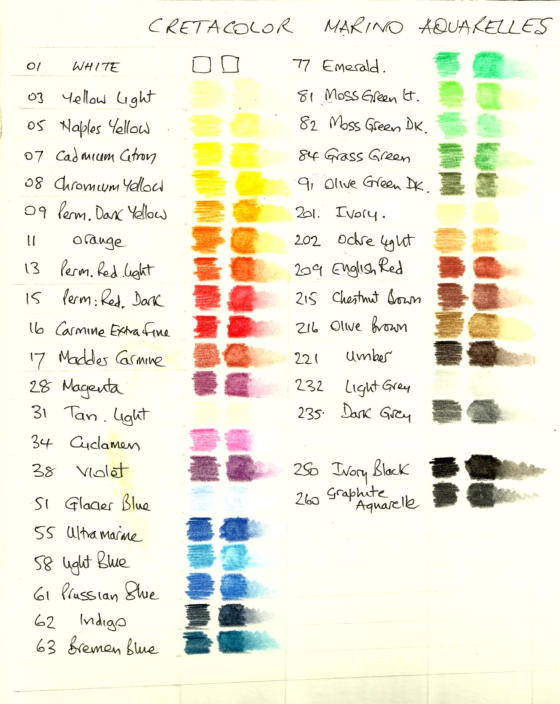 CRETACOLOR MARINO AQUARELLES
01 WHITE
03 Yellow Light
05 Naples Yellow
07 Cadmium Citron
08 Chromium Yellow
09 Perm. Dark Yellow
11 orange
13 Perm. Red Light
15 Perm: Red. Dark
16 Carmine Extra Fine
17 Madder Carmine
28 Magenta
31 Tan. Light
34 Cyclamen
38 Violet
51 Glacier Blue
55 Ultramarine
58 Light Blue
61 Prussian Blue
62 Indigo
63 Bremen Blue
77 Emerald.
81 Moss Green Lt.
82 Moss Green DK.
84 Grass Green
91 Olive Green DK.
201. Ivory.
202 Ochre Light
209 English Red
215 Chestnut Brown
216 Olive Brown
221 Umber
232 Light Grey
235. Dark Grey
250 Ivory Black
260 Graphite
Aquarelle